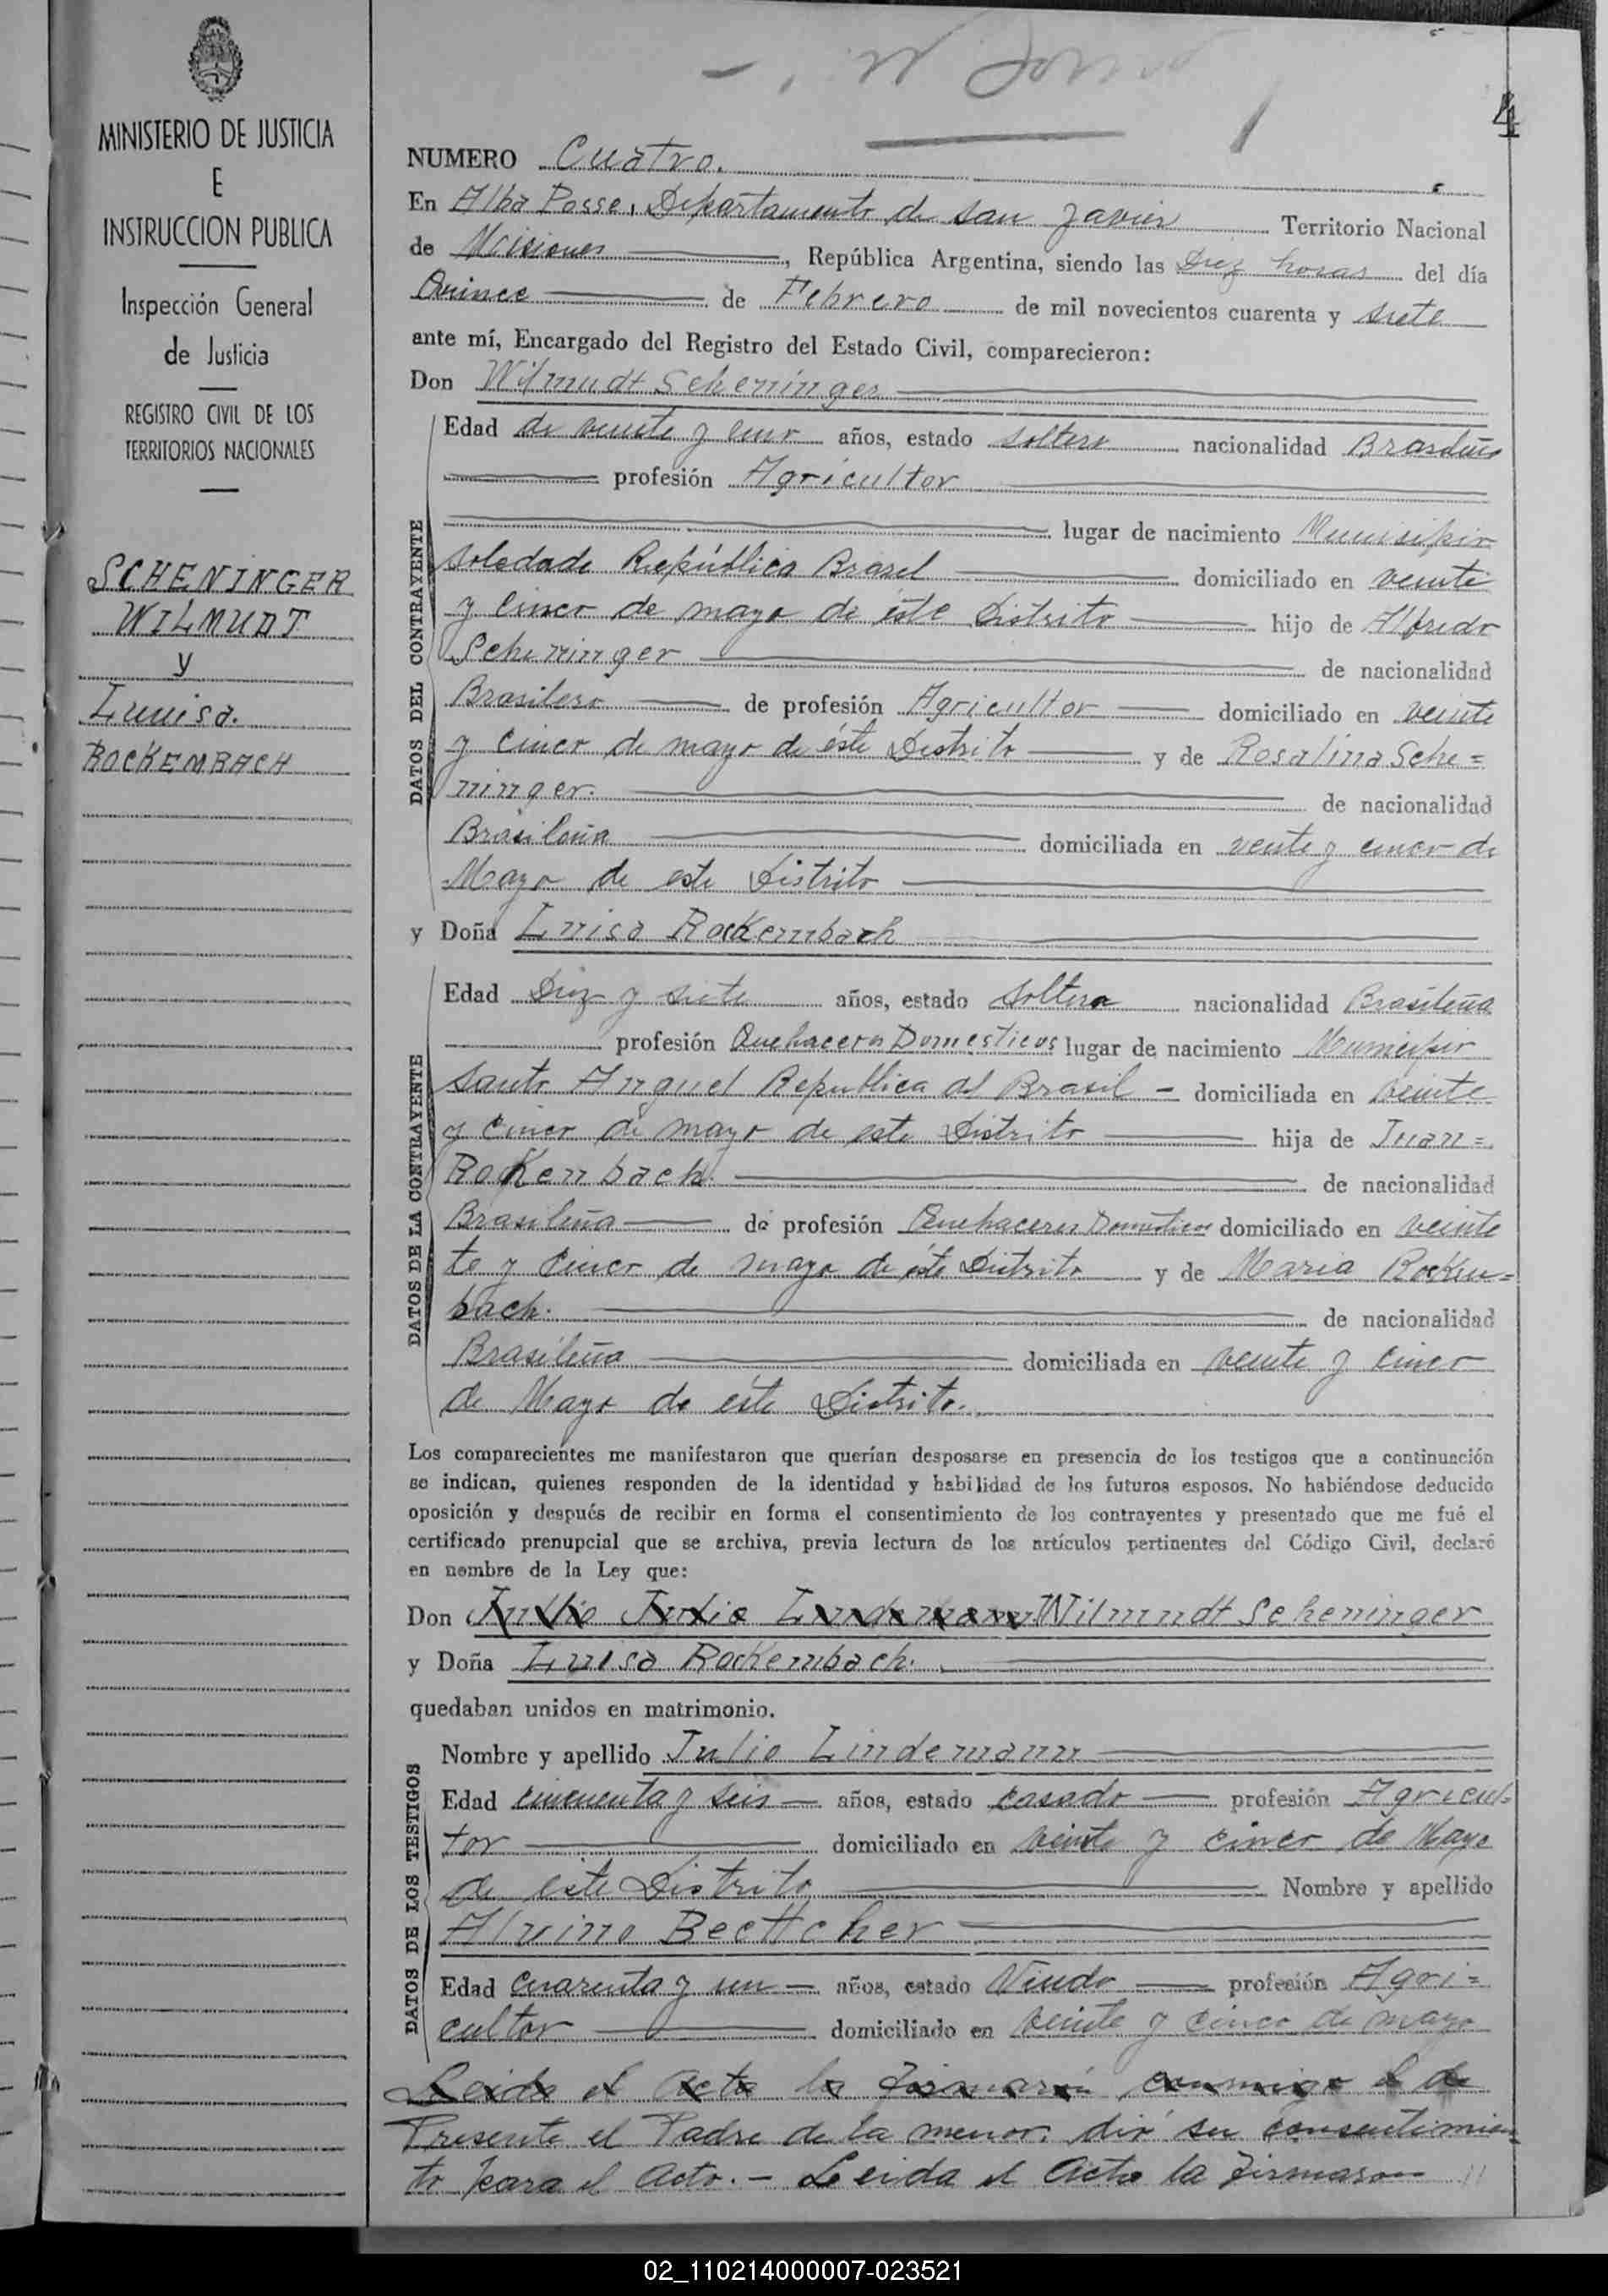 MINISTERIO DE JUSTICIA
E
INSTRUCCION PUBLICA
Inspección General
de Justicia
REGISTRO CIVIL DE LOS
TERRITORIOS NACIONALES
SCHENINGER
WILMUDT
y
Luuisa.
ROCKEMBACH
4
NUMERO Cuatro.
En Alba Posse, Departamento de San Javier Territorio Nacional
de Misiones, República Argentina, siendo las Diez horas del día
Quince de Febrero de mil novecientos cuarenta y siete
ante mí, Encargado del Registro del Estado Civil, comparecieron:
Don Wilmudt Scheninger
DATOS DEL CONTRAYENTE
Edad de veinte y años, estado soltero nacionalidad Brasileño
profesión Agricultor
lugar de nacimiento Munisipio
Soledade República Brasil domiciliado en veinte
y cinco de mayo de éste Distrito hijo de Alfredo
Scheninger de nacionalidad
Brasilero de profesión Agricultor domiciliado en veinte
y cinco de mayo de éste Distrito y de Rosalina Sche=
ninger. de nacionalidad
Brasileña domiciliada en veinte y cinco de
Mayo de este Distrito
y Doña Luisa Rockembach
DATOS DE LA CONTRAYENTE
Edad Diez y siete años, estado soltera nacionalidad Brasileña
profesión Quehaceres Domesticos lugar de nacimiento Municipio
Santo Anguel Republica del Brasil - domiciliada en veinte
y cinco de mayo de este Distrito hija de Juan=
Rokenbach. de nacionalidad
Brasileña de profesión Quehaceres Domesticos domiciliado en veinte
te y cinco de mayo de éste Distrito y de Maria Rocken=
bach. de nacionalidad
Brasileña domiciliada en veinte y cinco
de Mayo de éste Distrito.
Los comparecientes me manifestaron que querían desposarse en presencia de los testigos que a continuación
se indican, quienes responden de la identidad y habilidad de los futuros esposos. No habiéndose deducido
oposición y después de recibir en forma el consentimiento de los contrayentes y presentado que me fué el
certificado prenupcial que se archiva, previa lectura de los artículos pertinentes del Código Civil, declaré
en nombre de la Ley que:
Don Julio Julio Lindemann Wilmudt Scheninger
y Doña Luisa Rockembach.
quedaban unidos en matrimonio.
DATOS DE LOS TESTIGOS
Nombre y apellido Julio Lindemann
Edad cincuenta y seis años, estado casado profesión Agricul=
tor domiciliado en veinte y cinco de Mayo
de este Distrito Nombre y apellido
Alvino Beettcher
Edad cuarenta y un años, estado Viudo profesión Agri=
cultor domiciliado en veinte y cinco de mayo
Leida el acta la firmarón conmigo el de
Presente el Padre de la menor, dió su consentimien
to para el acto. - Leida el Acta la firmaron
02_110214000007-023521